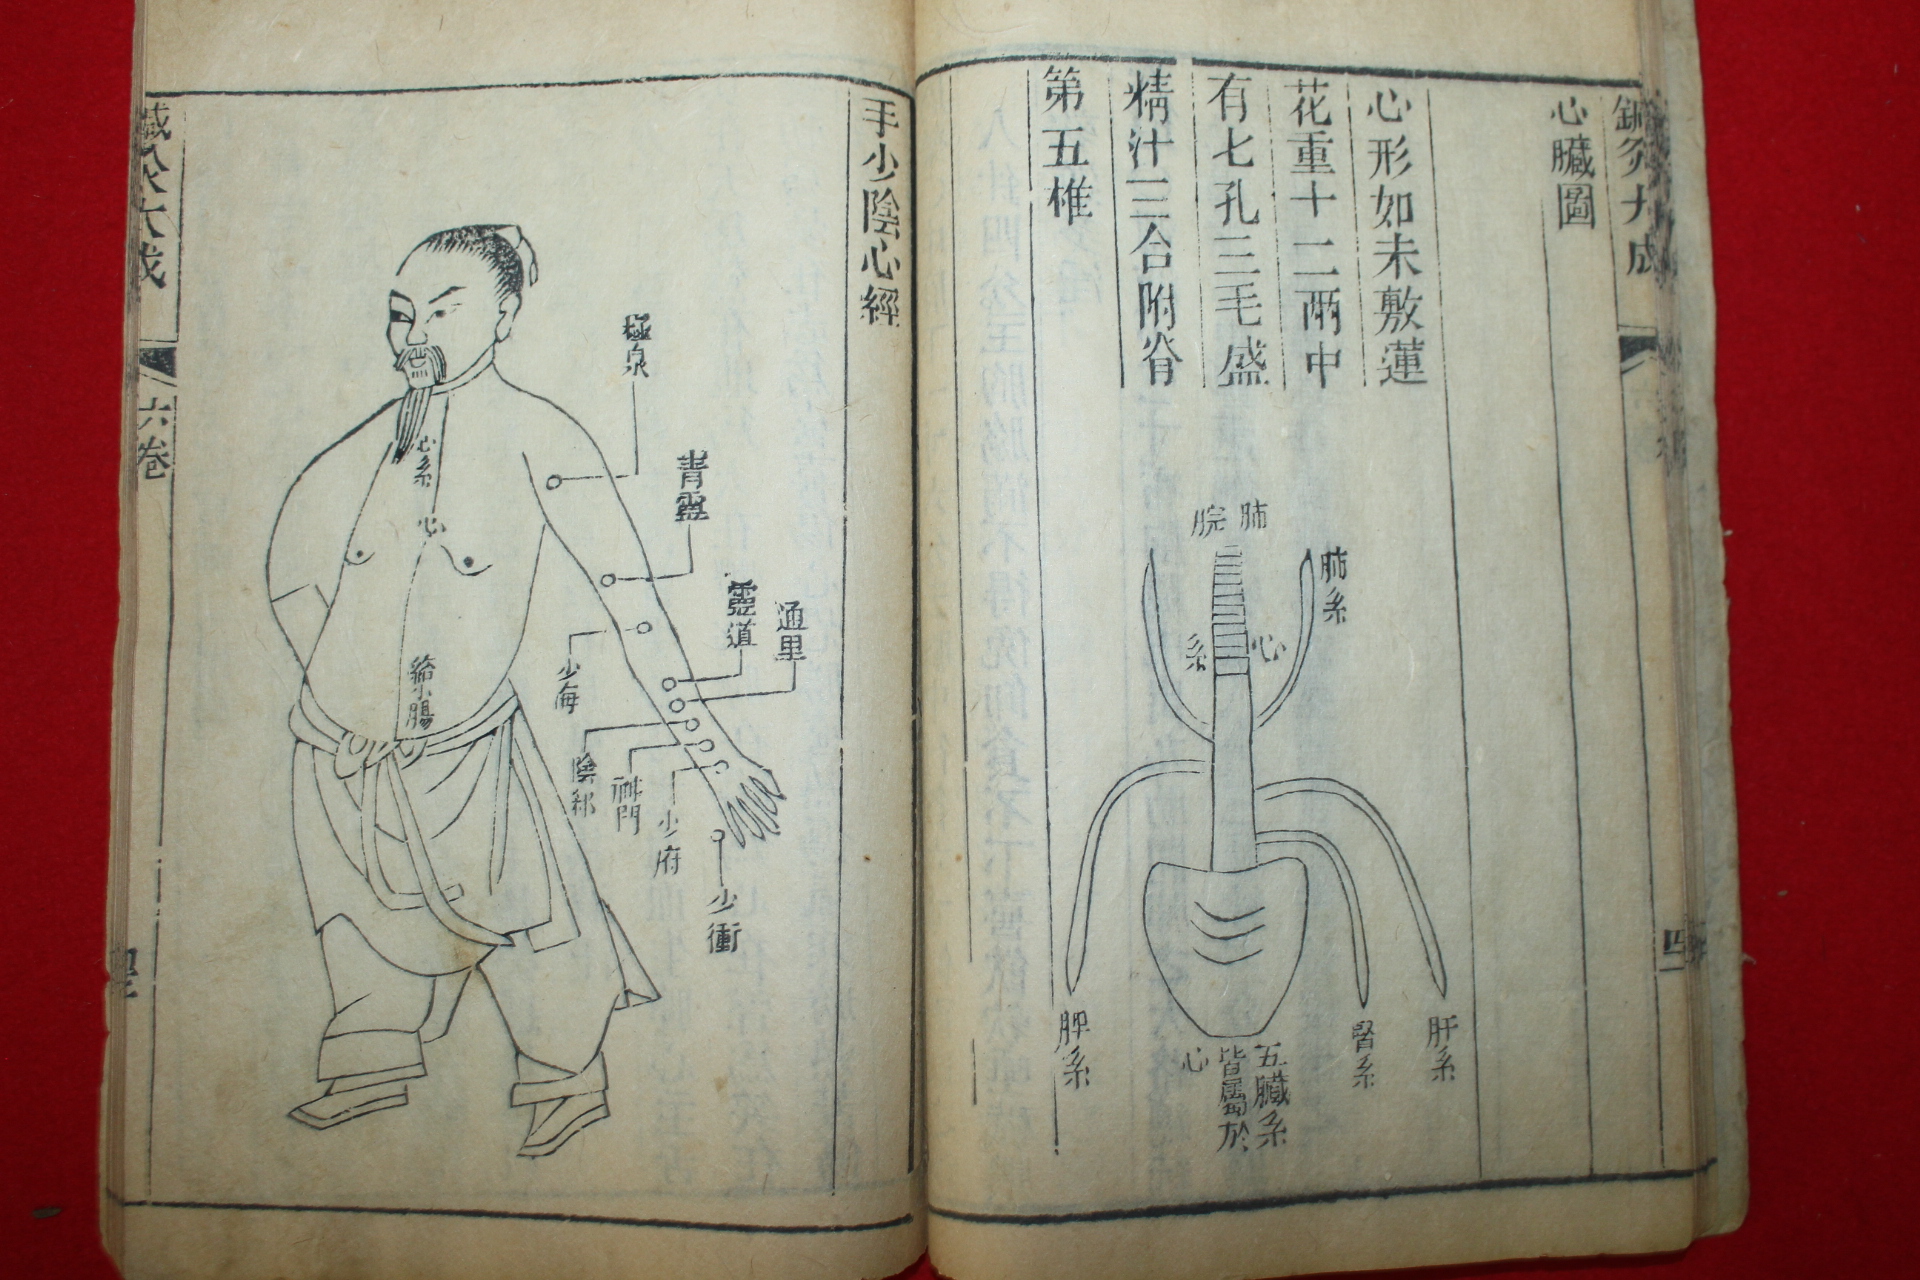 心臟圖
心形如未敷蓮
花重十二兩中
有七孔三毛盛
精汁三合附脊
第五椎
肺
脘
肺系
心
系
肝系
腎系
脾系
五臟系
皆屬於
心
四
手少陰心經
極泉
青靈
靈道
通里
少海
陰郄
神門
少府
少衝
心系
心
絡小腸
六卷